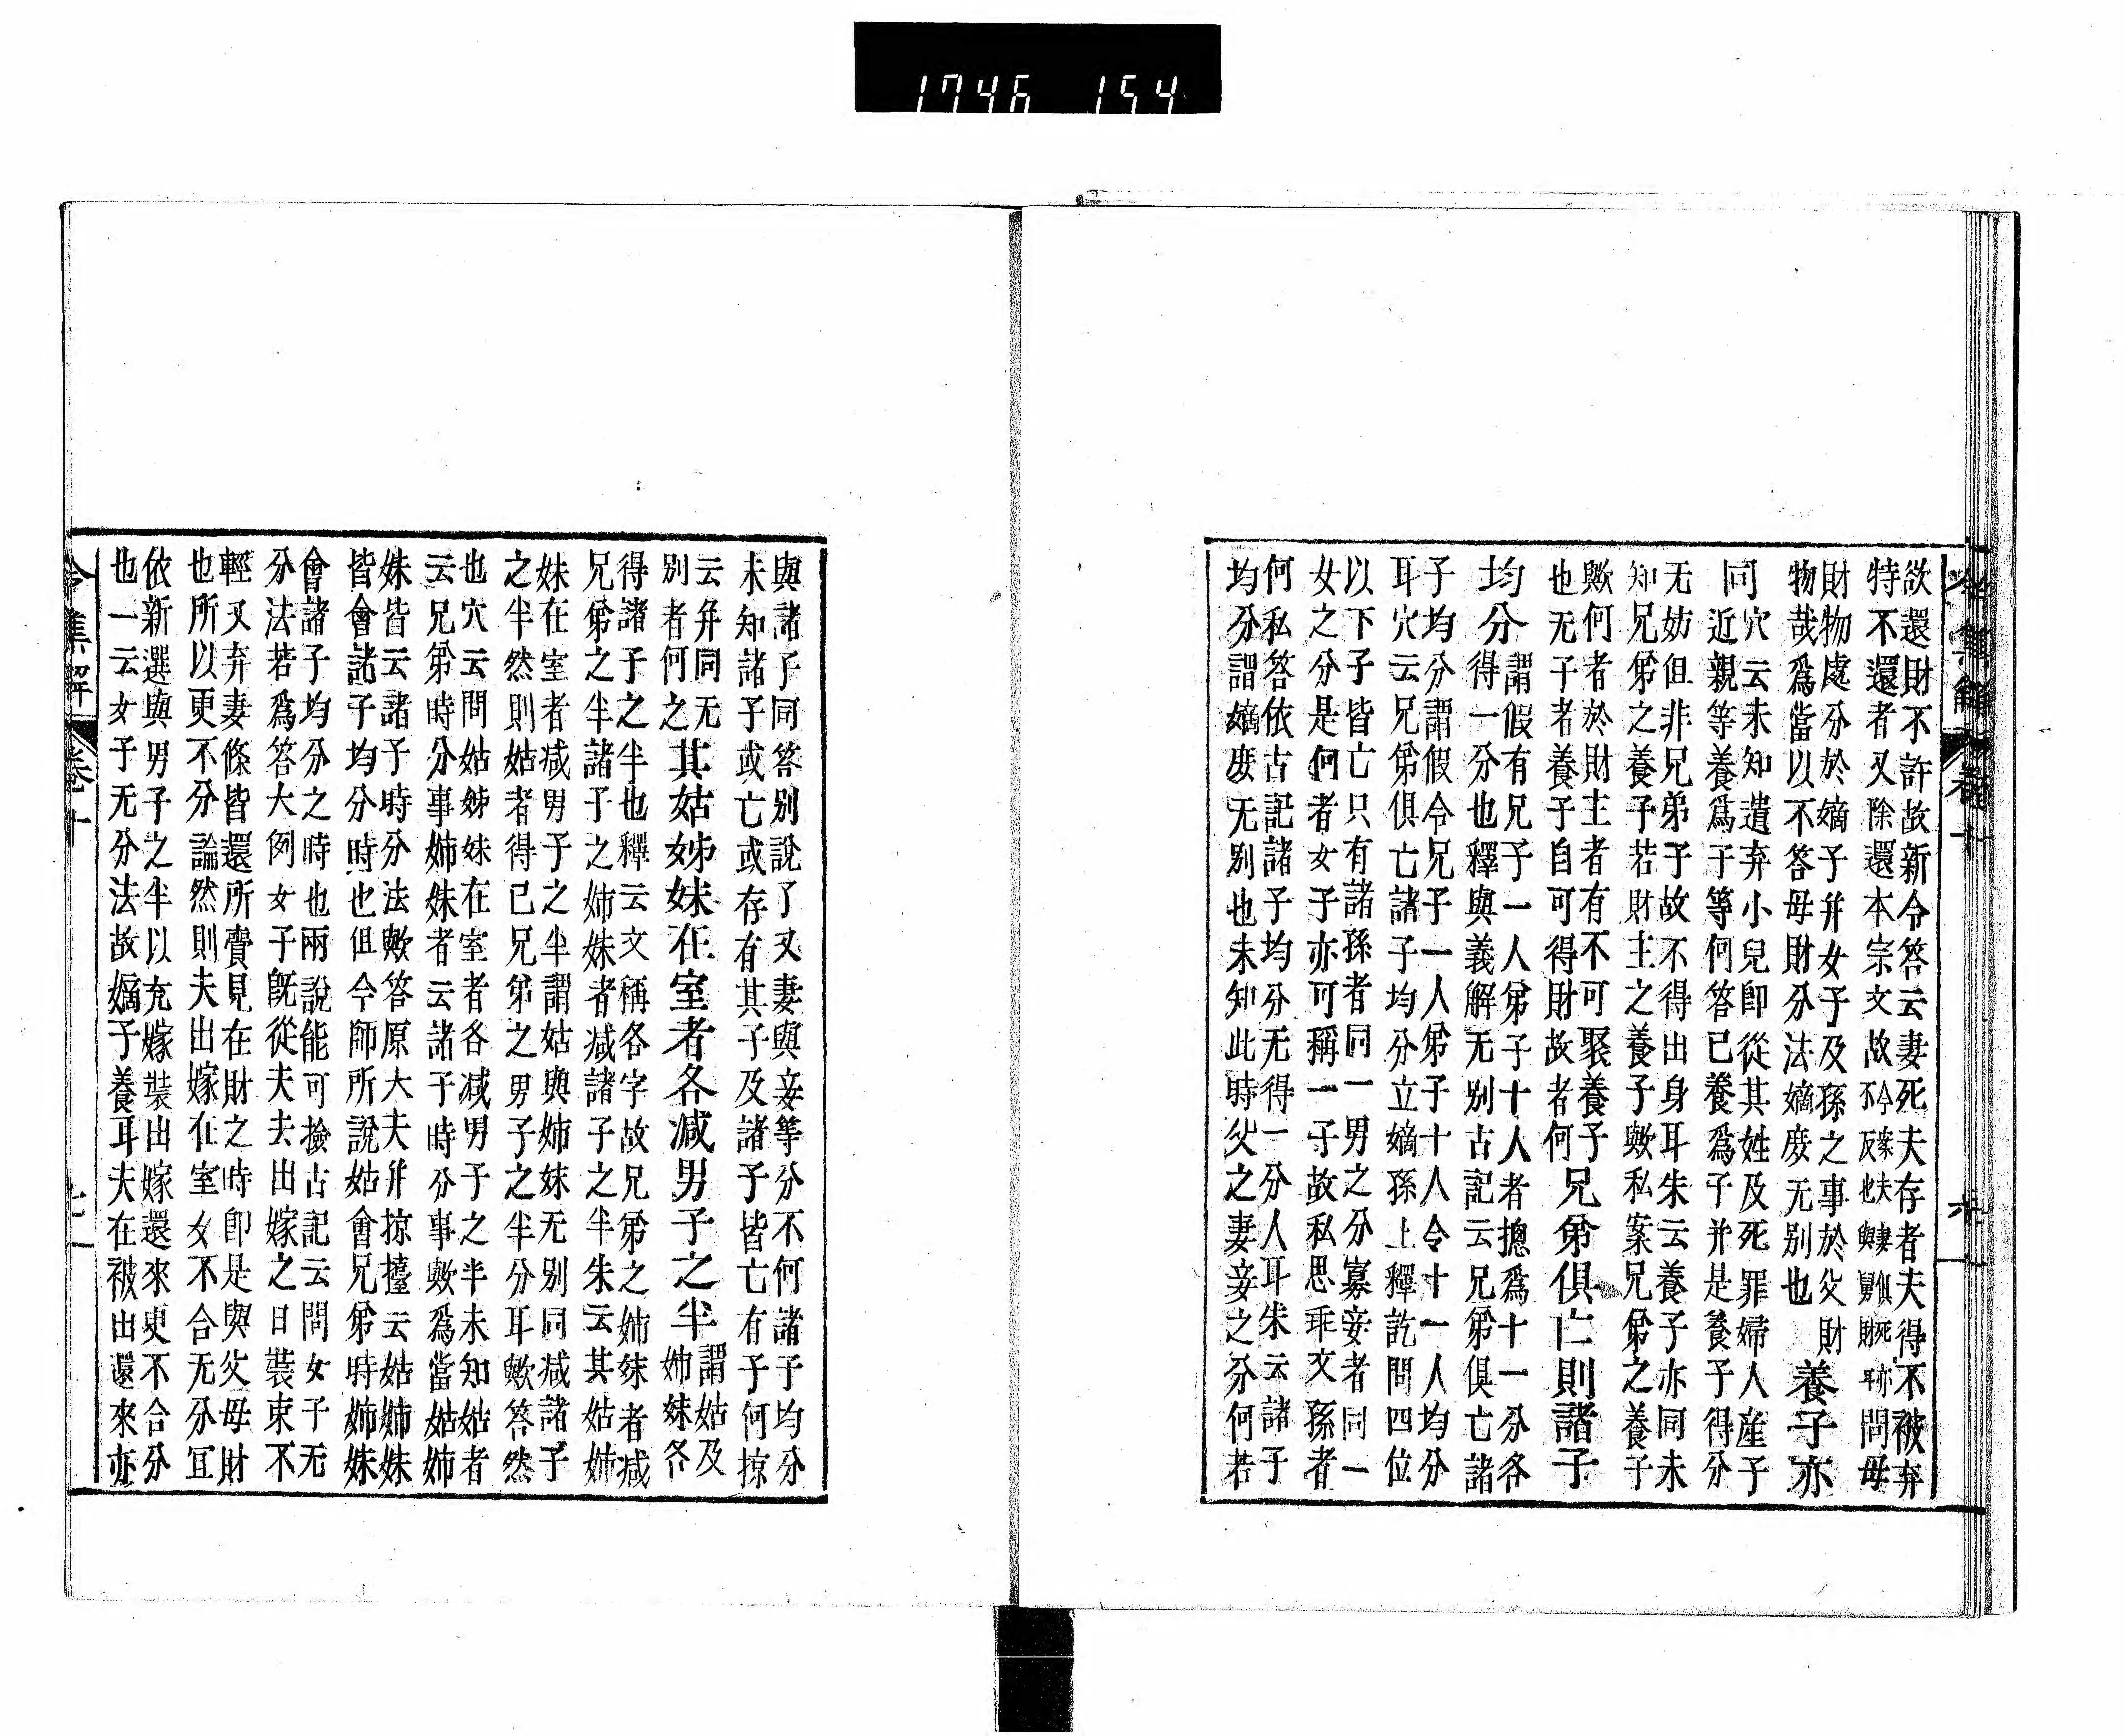 1746 154
欲還財不許故新令答云妻死夫存者夫得不被弃
特不還者又除還本宗文故今案夫妻俱死亦
不反也與舅財耳問母
財物處分於嫡子幷女子及孫之事於父財
物哉爲當以不答母財分法嫡庶无別也
養子亦
同
穴云未知遺弃小兒卽從其姓及死罪婦人産子
近親等養爲子等何答已養爲子幷是養子得分
无妨但非兄弟子故不得出身耳朱云養子亦同未
知兄弟之養子若財主之養子歟私案兄弟之養子
歟何者於財主者有不可聚養子
也无子者養子自可得財故者何
兄弟俱亡則諸子
均分
謂假有兄子一人弟子十人者揔爲十一分各
得一分也釋與義解无別古記云兄弟俱亡諸
子均分謂假令兄子一人弟子十人令十一人均分
耳穴云兄弟俱亡諸子均分立嫡孫上釋訖問四位
以下子皆亡只有諸孫者同一男之分寡妾者同一
女之分是何者女子亦可稱一子故私思乖文孫者
何私答依古記諸子均分无得一分人耳朱云諸子
均分謂嫡庶无別也未知此時父之妻妾之分何若
令集解 卷十
與諸子同答別說了又妻與妾等分不何諸子均分
未知諸子或亡或存有其子及諸子皆亡有子何掠
云幷同无
別者何之
其姑姊妹在室者各減男子之半
謂姑及
姉妹各
得諸子之半也釋云文稱各字故兄弟之姉妹者減
兄弟之半諸子之姉妹者減諸子之半朱云其姑姉
妹在室者減男子之半謂姑與姉妹无別同減諸子
之半然則姑者得已兄弟之男子之半分耳歟答然
也穴云問姑姊妹在室者各減男子之半未知姑者
云兄弟時分事姉妹者云諸子時分事歟爲當姑姉
妹皆云諸子時分法歟答原大夫幷掠擡云姑姉妹
皆會諸子均分時也但今師所說姑會兄弟時姉妹
會諸子均分之時也兩說能可撿古記云問女子无
分法若爲答大例女子旣從夫去出嫁之日裝束不
輕又弃妻條皆還所賫見在財之時卽是與父母財
也所以更不分論然則夫出嫁在室女不合无分冝
依新選與男子之半以充嫁裝出嫁還來更不合分
也一云女子无分法故嫡子養耳夫在被出還來亦
令集解 卷十 七一